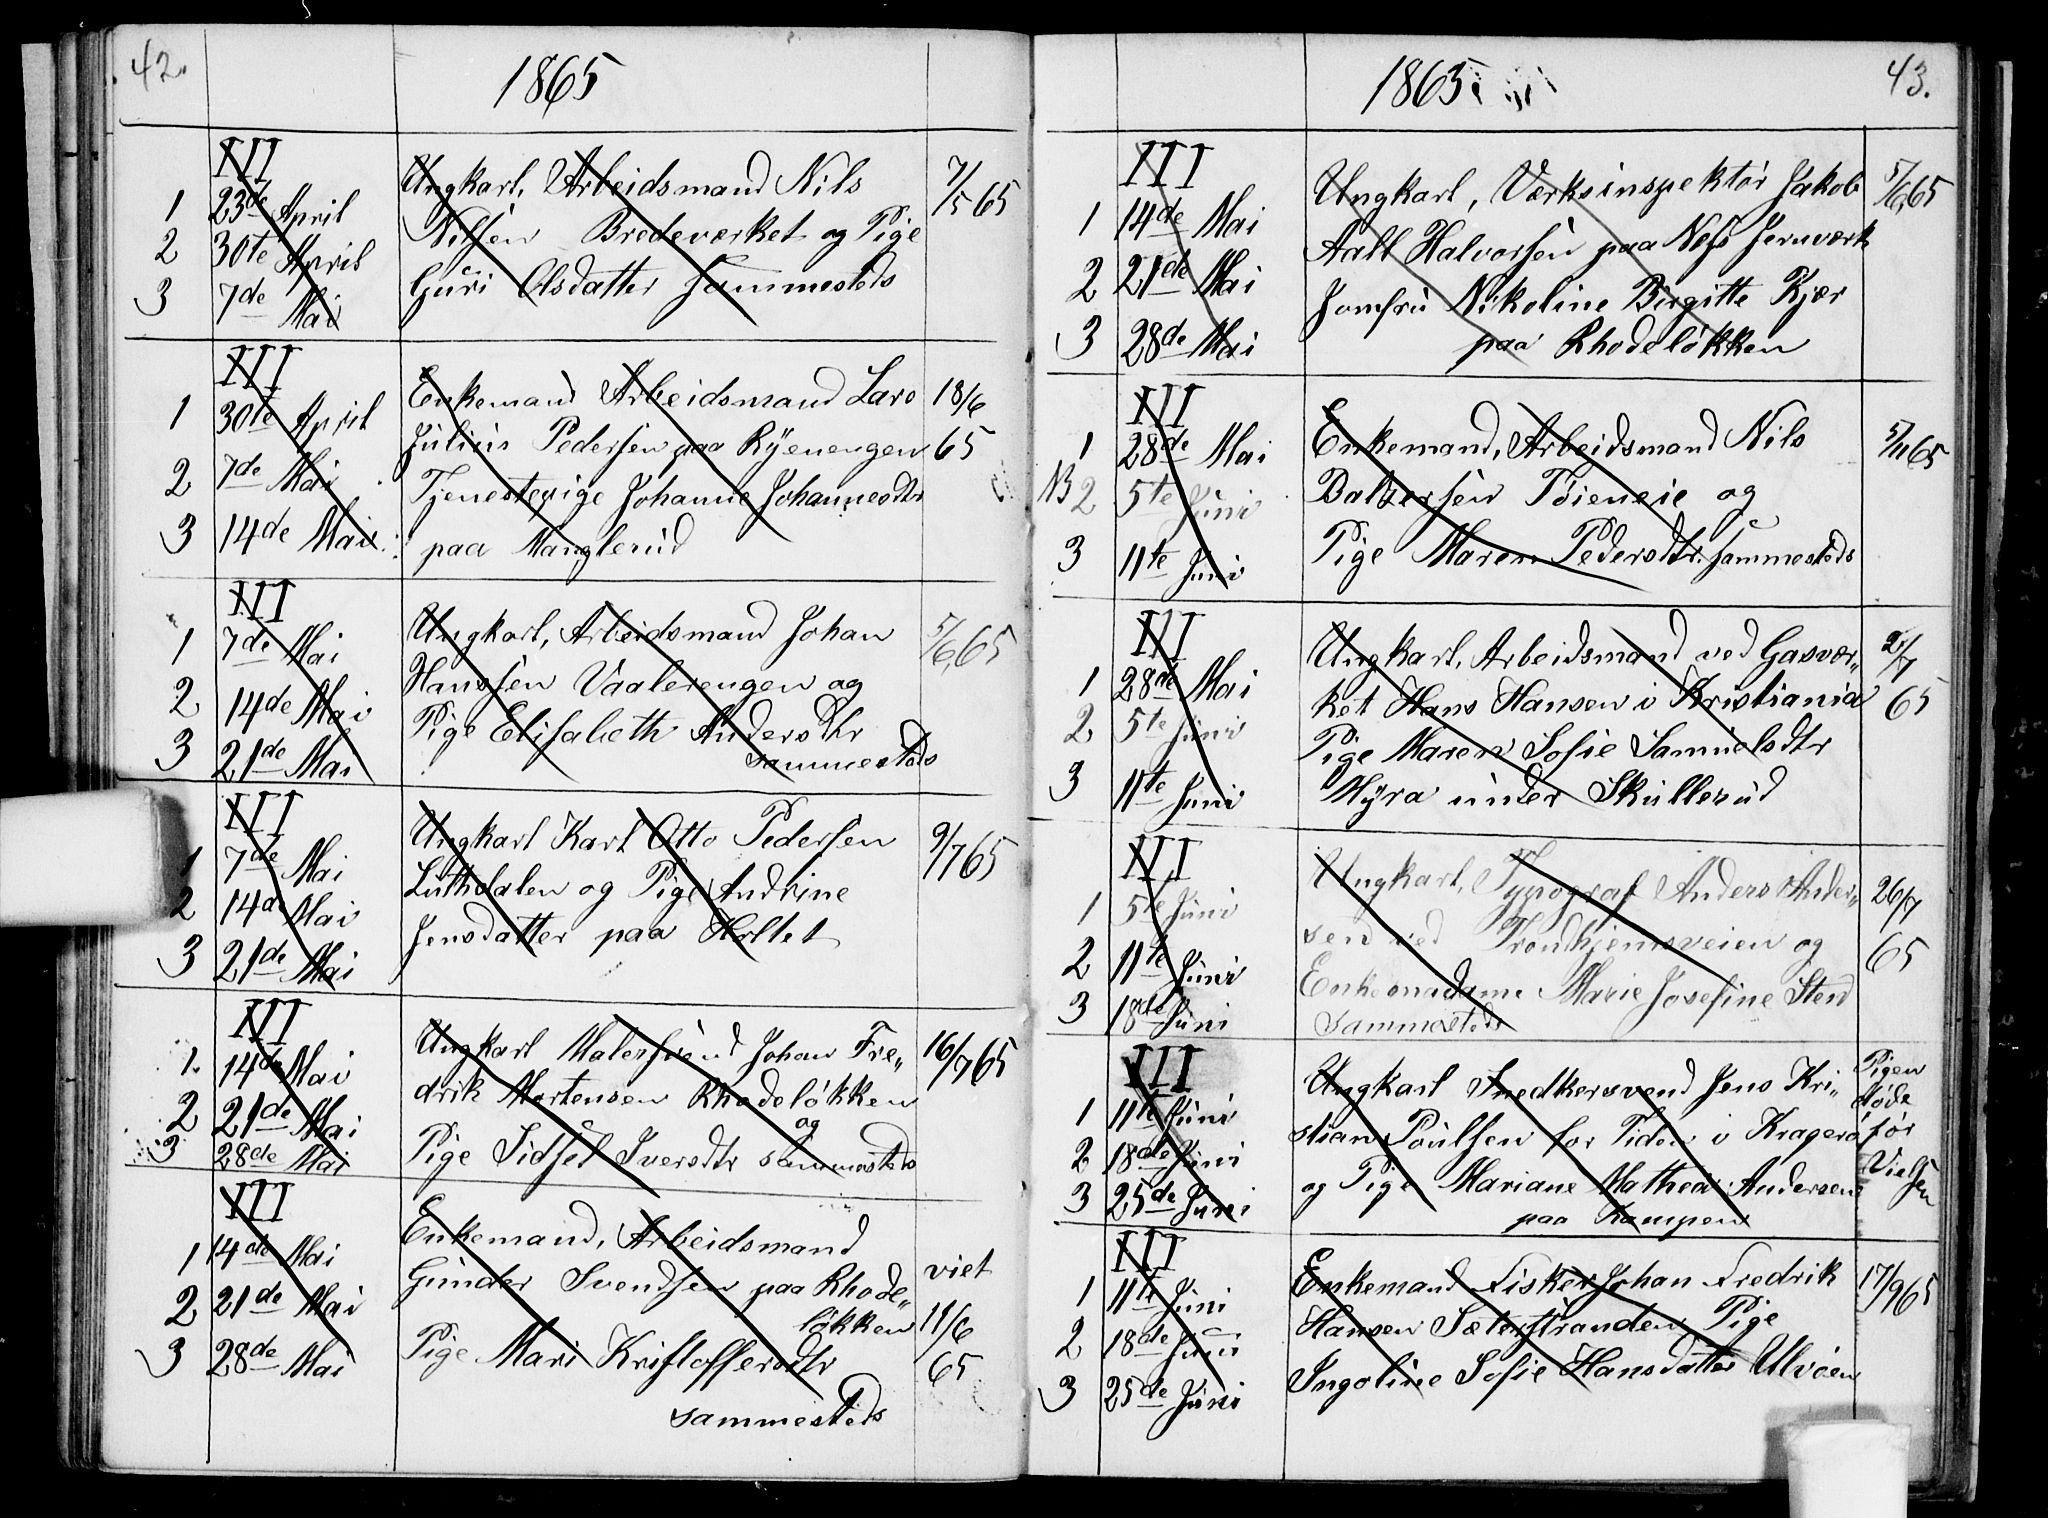 42.
1865
III
1 23de April
2 30te April
3 7de Mai
Ungkarl, Arbeidsmand Nils
Nilsen Bredeværket og Pige
Guri Olsdatter sammesteds
7/5 65
III
1 30te April
2 7de Mai
3 14de Mai
Enkemand Arbeidsmand Lars
Julius Pedersen paa Ryenengen
Tjenestepige Johanne Johannesdtr
paa Manglerud
18/6
65
III
1 7de Mai
2 14de Mai
3 21de Mai
Ungkarl, Arbeidsmand Johan
Hanssen Vaalerengen og
Pige Elisabeth Andersdtr
sammesteds
5/6 65
III
1 7de Mai
2 14de Mai
3 21de Mai
Ungkarl Karl Otto Pedersen
Luthdalen og Pige Andrine
Jensdatter paa Holtet
9/7 65
III
1. 14de Mai
2 21de Mai
3 28de Mai
Ungkarl Malersvend Johan Fre„
drik Mortensen Rhodeløkken
og
Pige Sidsel Iversdtr sammesteds
16/7 65
III
1 14de Mai
2 21de Mai
3 28de Mai
Enkemand, Arbeidsmand
Gunder Svendsen paa Rhode„
løkken
Pige Mari Kristoffersdtr
sammesteds
viet
11/6
65
43.
1865
III
1 14de Mai
2 21de Mai
3 28de Mai
Ungkarl, Værksinspektør Jakob
Aall Halvorsen paa Nes Jernværk
Jomfru Nikoline Birgitte Kjær
paa Rhodeløkken
5/6 65
III
1 28de Mai
NB 2 5te Juni
3 11te Juni
Enkemand, Arbeidsmand Nils
Baltzersen Tøieneie og
Pige Maren Pedersdtr. sammesteds
5/11 65
III
1 28de Mai
2. 5te Juni
3 11te Juni
Ungkarl, Arbeidsmand ved Gasvær„
ket Hans Hansen i Kristiania
Pige Maren Sofie Samuelsdtr
Myra under Skullerud
2/7
65
III
1 5te Juni
2 11te Juni
3 18de Juni
Ungkarl, Typograf Anders Ander„
sen ved Trondhjemsveien og
Enkemadame Marie Josefine Sten
sammesteds
26/7
65
III
1 11te Juni
2 18de Juni
3 25de Juni
Ungkarl Snedkersvend Jens Kri„
stian Poulsen for Tiden i Kragerø
og Pige Mariane Mathea Andersen
paa Kampen
Pigen
døde
før
Vielsen
III
1 11te Juni
2 18de Juni
3 25de Juni
Enkemand Fisker Johan Fredrik
Hansen Sæterstranden Pige
Ingoline Sofie Hansdatter Ulvøen
17/9 65